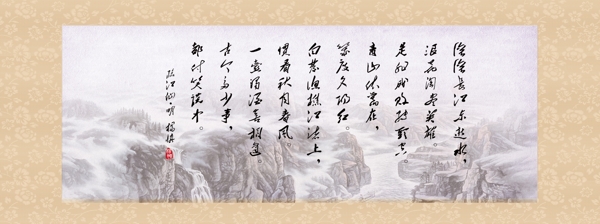 滚滚长江东逝水，
浪花淘尽英雄。
是非成败转头空。
青山依旧在，
几度夕阳红。
白发渔樵江渚上，
惯看秋月春风。
一壶浊酒喜相逢。
古今多少事，
都付笑谈中。
临江仙·明 杨慎